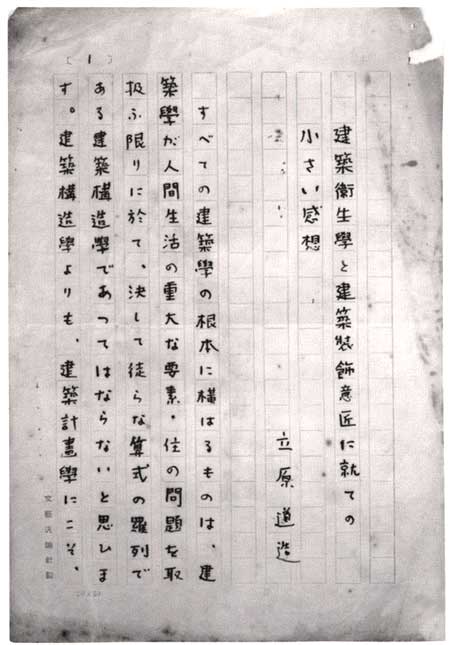 [1]
建築衛生學と建築装飾意匠に就ての
小さい感想
立原道造
すべての建築學の根本に横はるものは、建
築學が人間生活の重大な要素・住の問題を取
扱ふ限りに於て、決して徒らな算式の羅列で
ある建築構造學であつてはならないと思ひま
す。建築構造學よりも、建築計畫學にこそ、
文藝汎論社製